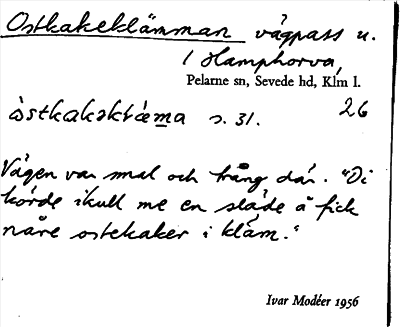 Ostkakeklämman vägpass u.
/ Hamphorva,
Pelarne sn, Sevede hd, Klm l.
26
s. 31.
Vägen var smal och trång där. "Di
körde ikull me en släde å fick
nåre ostekaker i kläm."
Ivar Modéer 1956